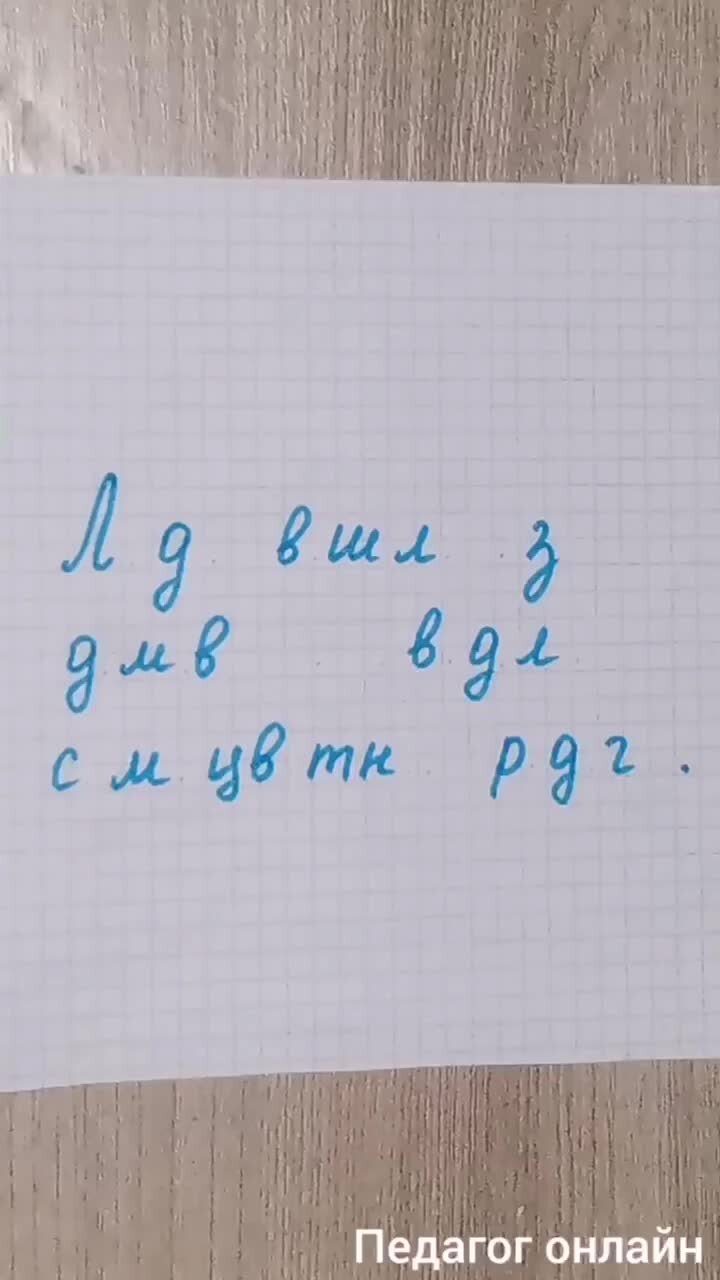 Л д вшл з
дмв вдл
с м цвтн рдг.
Педагог онлайн